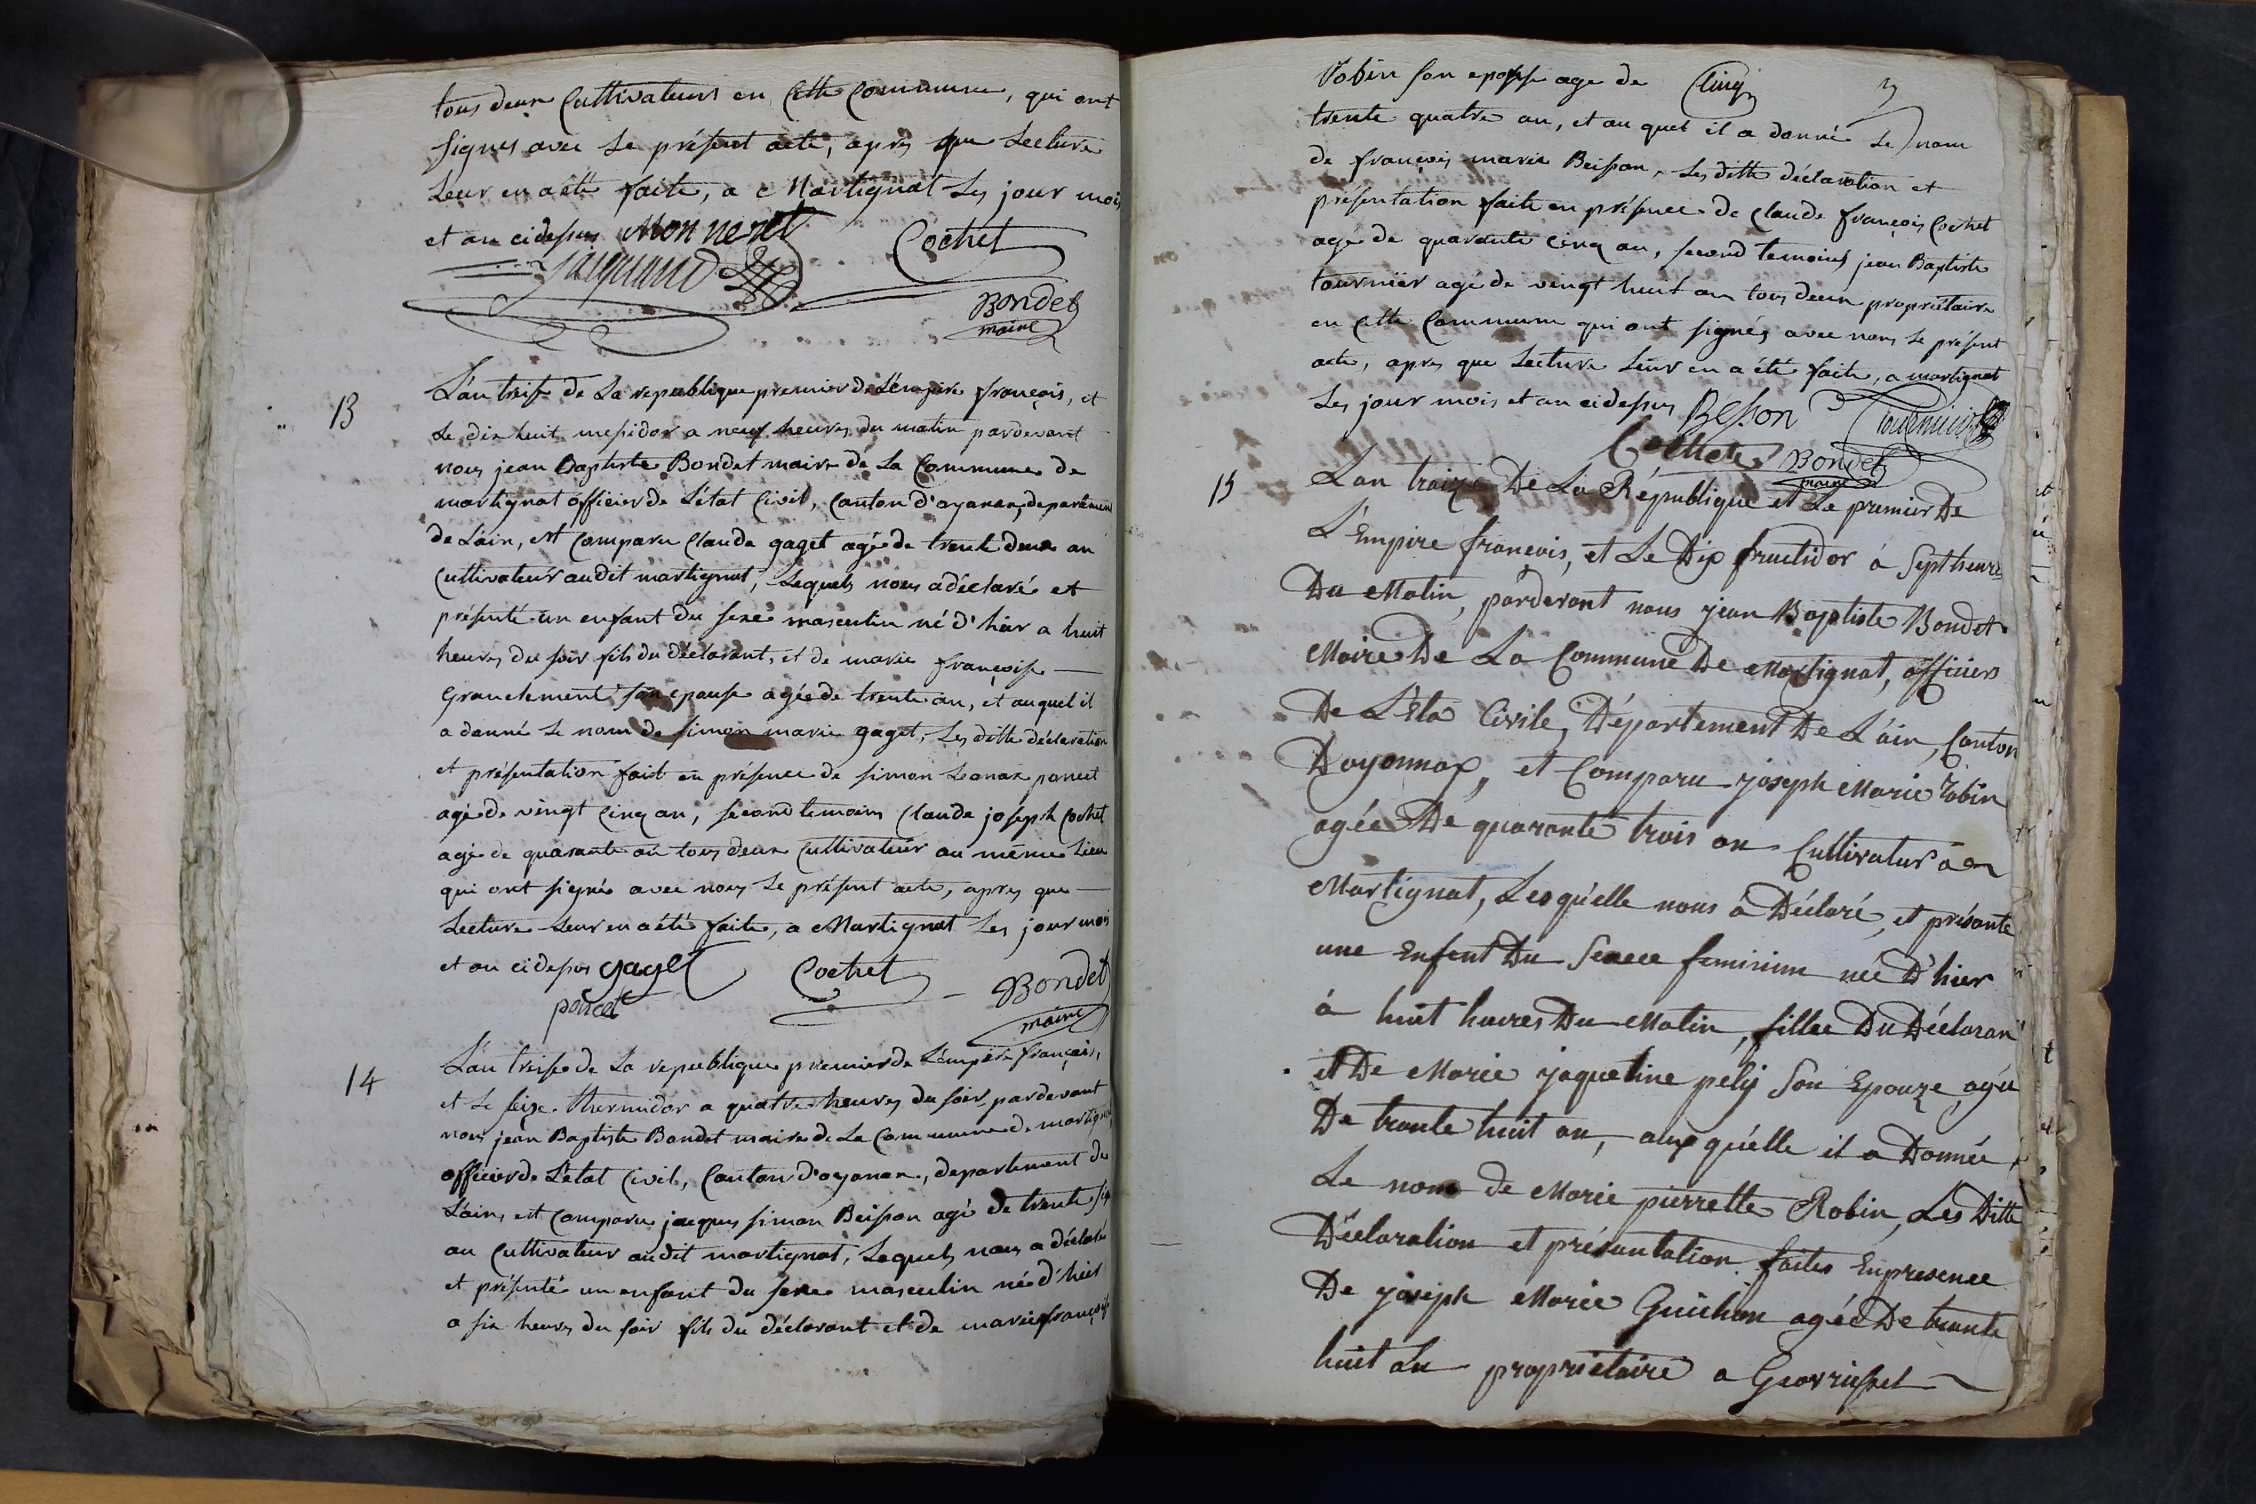 tous deux Cultivateurs en Cette Commune, qui ont
signes avec le présent acte, apres que Lecture
Leur en a été faite, a Martignat Les jour mois
et an cidessus Monneret
Jacquand Cochet
Bondet
maire
13
L'an treise de La republique premier de L'empire françois, et
Le dix huit messidor a neuf heures du matin pardevant
nous jean Baptiste Bondet maire de La Commune de
martignat officier de L'état Civil, Canton d'oyonax, departement
de L'ain, est Comparu Claude gaget agé de trente deux an
Cultivateur audit martignat, Lequels nous a déclaré et
présenté un enfant du sexe masculin né d'hier a huit
heures du soir fils du déclarant, et de marie françoise
Granclement son epouse agée de trente an, et auquel il
a donné Le nom de simon marie gaget, Les ditte déclaration
et présentation fait en présence de simon Leonax poncet
agé de vingt Cinq an, second temoins Claude joséph Cochet
agé de quarante an tous deux Cultivateur au même Lieu
qui ont signés avec nous Le présent acte, apres que
Lecture Leur en a été faite, a Martignat Les jour mois
et an cidessus gaget Cochet Bondet
poncet maire
14
L'an treise de La republique premier de L'empire français,
et Le seize thermidor a quatre heures du soir pardevant
nous jean Baptiste Bondet maire de La Commune de martignat
officier de L'état Civil, Canton d'oyonax, departement de
L'ain, est Comparu jacques simon Beisson agé de trente six
an Cultivateur audit martignat, Lequels nous a déclaré
et présenté un enfant du sexe masculin né d'hier
a six heures du soir fils du déclarant et de marie françoise
Robin son epouse age de Cinq 3
trente quatre an, et au quel il a donné Le nom
de françois marie Beisson, Les ditte déclaration et
présentation faite en présence de Claude françois Cochet
agé de quarante Cinq an, second temoins jean Baptiste
tournier agé de vingt huit an tous deux propriétaire
en Cette Commune qui ont signés avec nous Le présent
acte, apres que Lecture Leur en a été faite, a martignat
Les jour mois et an cidessus Besson Tournier
Cochet Bondet
maire
15
L'an traize De La République et Le premier De
L'Empire françois, et Le Dix fructidor à Sept heures
Du Matin, pardevant nous jean Baptiste Bondet
Maire De La Commune De Martignat, officiers
De L'Eta Civile, Département De L'ain, Canton
Doyonnax, et Comparu joseph Marie Robin
agée De quarante trois an Cultivatur à
Martignat, Lesquélle nous à Déclaré, et présante
une Enfent Du Sexee feminim née D'hier
à huit heures Du Matin, fillee Du Déclaran
et De Marie jaqueline pely Son Epouze agée
De trante huit an, aux quélle il a Donnée
Le nom de Marie pierrette Robin, Les Ditte
Déclaration et présantation faites Enpresence
De joseph Marie Guichon agée De trante
huit an propriétaire a Geovrisset